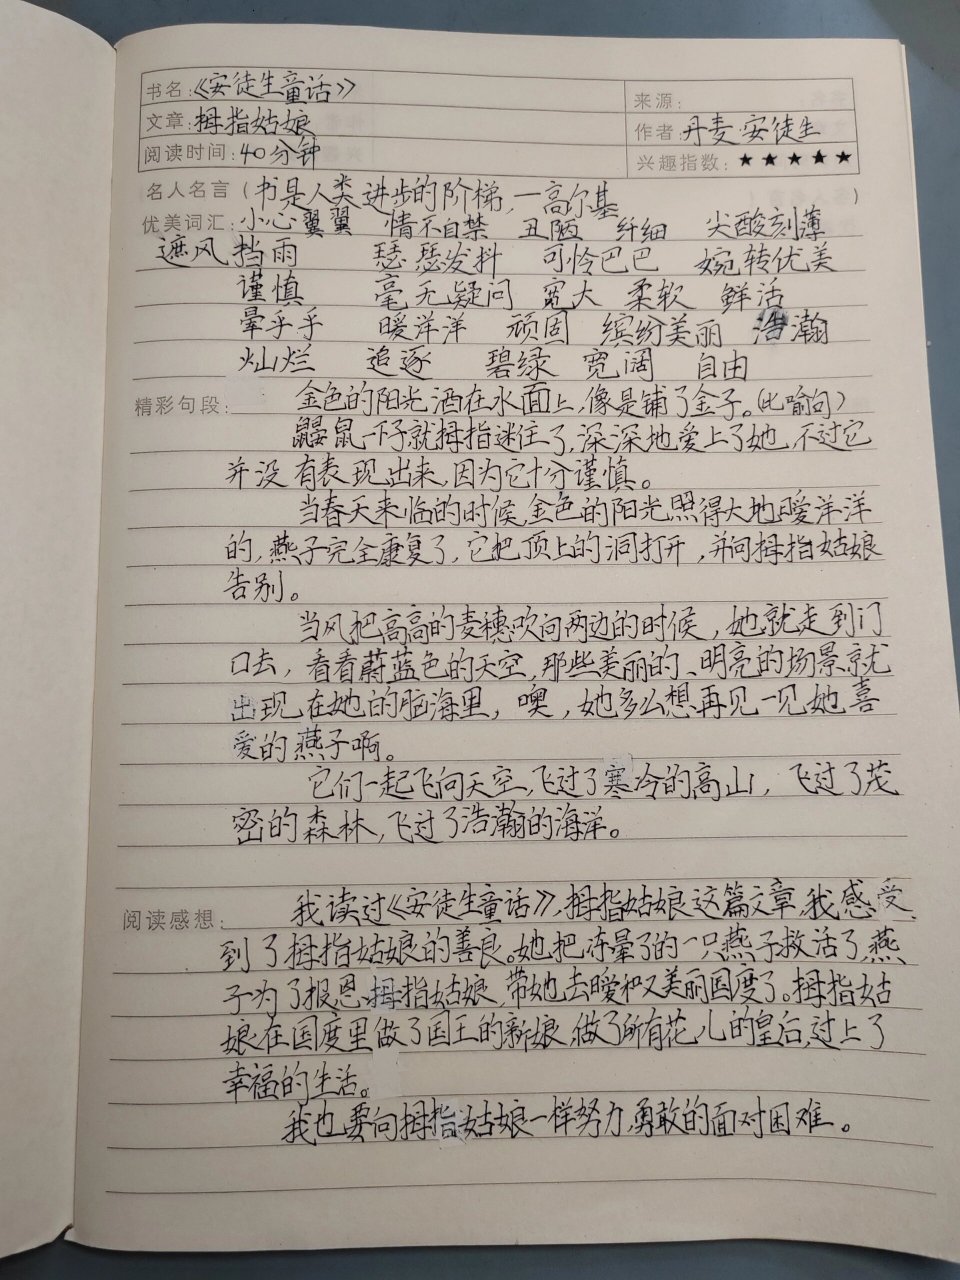 书名:《安徒生童话》
来源:
文章:拇指姑娘
作者:丹麦·安徒生
阅读时间:40分钟
兴趣指数:★★★★★
名人名言(书是人类进步的阶梯,—高尔基)
优美词汇:小心翼翼 情不自禁 丑陋 纤细 尖酸刻薄
遮风挡雨 瑟瑟发抖 可怜巴巴 婉转优美
谨慎 毫无疑问 宽大 柔软 鲜活
晕乎乎 暖洋洋 顽固 缤纷美丽 浩瀚
灿烂 追逐 碧绿 宽阔 自由
精彩句段: 金色的阳光洒在水面上,像是铺了金子。(比喻句)
鼹鼠一下子就拇指迷住了,深深地爱上了她,不过它
并没有表现出来,因为它十分谨慎。
当春天来临的时候,金色的阳光照得大地暖洋洋
的,燕子完全康复了,它把顶上的洞打开,并向拇指姑娘
告别。
当风把高高的麦穗吹向两边的时候,她就走到门
口去,看看蔚蓝色的天空,那些美丽的、明亮的场景,就
出现在她的脑海里,噢,她多么想再见一见她喜
爱的燕子啊。
它们一起飞向天空,飞过了寒冷的高山,飞过了茂
密的森林,飞过了浩瀚的海洋。
阅读感想: 我读过《安徒生童话》,拇指姑娘这篇文章,我感受
到了拇指姑娘的善良。她把冻晕了的一只燕子救活了,燕
子为了报恩、拇指姑娘,带她去暖和又美丽国度了。拇指姑
娘在国度里做了国王的新娘,做了所有花儿的皇后,过上了
幸福的生活。
我也要向拇指姑娘一样努力,勇敢的面对困难。